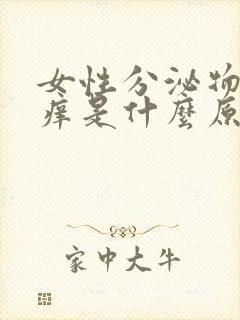 女性分泌物
痒是什麼原
家中大牛